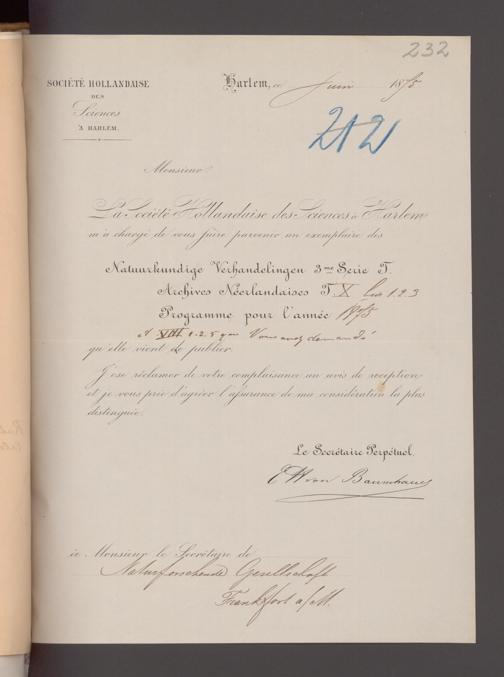 232
SOCIÉTÉ HOLLANDAISE
DES
Sciences
À HARLEM.
Harlem, ce Juin 1875
212
Monsieur
La Société Hollandaise des Sciences à Harlem
m'a chargé de vous faire parvenir un exemplaire des
Natuurkundige Verhandelingen 3me Serie T.
Archives Néerlandaises T. X Liv 1.2.3
Programme pour l'année 1875
et VIII 1-2.5 que Vous avez demandé
qu'elle vient de publier.
J'ose réclamer de votre complaisance un avis de reception
et je vous prie d'agréer l'assurance de ma considération la plus
distinguée.
Le Secrétaire Perpétuel.
EH von Baumhauer
à Monsieur le Secrétaire de
Naturforschende Gesellschaft
Frankfort a/M.